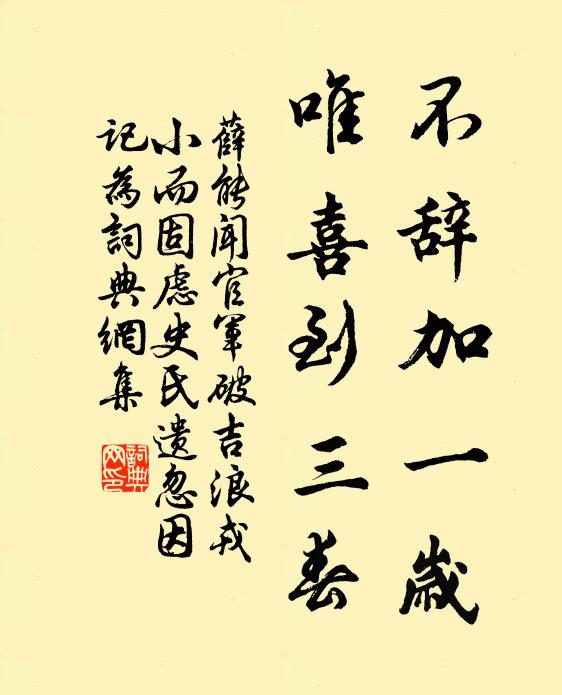 不辞加一歲
唯喜到三春
薛能聞官軍破吉浪戎
小而固慮史氏遺忽因
記為詞典網集
詞典
网印